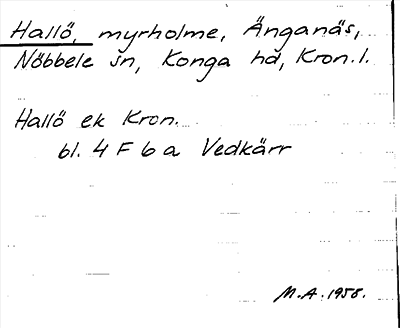 Hallö, myrholme, Änganäs,
Nöbbele sn, Konga hd, Kron. l.
Hallö ek Kron.
bl. 4 F 6 a Vedkärr
M.A. 1958.